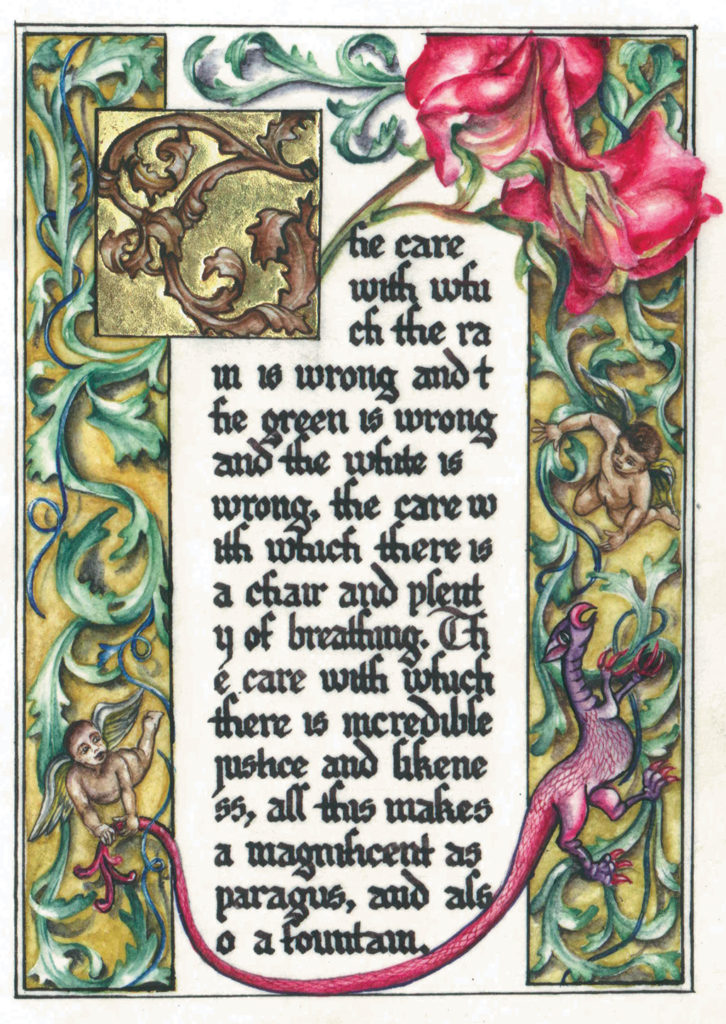 The care
with whi
ch the ra
in is wrong and t
he green is wrong
and the white is
wrong, the care w
ith which there is
a chair and plent
y of breathing. Th
e care with which
there is incredible
justice and likene
ss, all this makes
a magnificent as
paragus, and als
o a fountain.